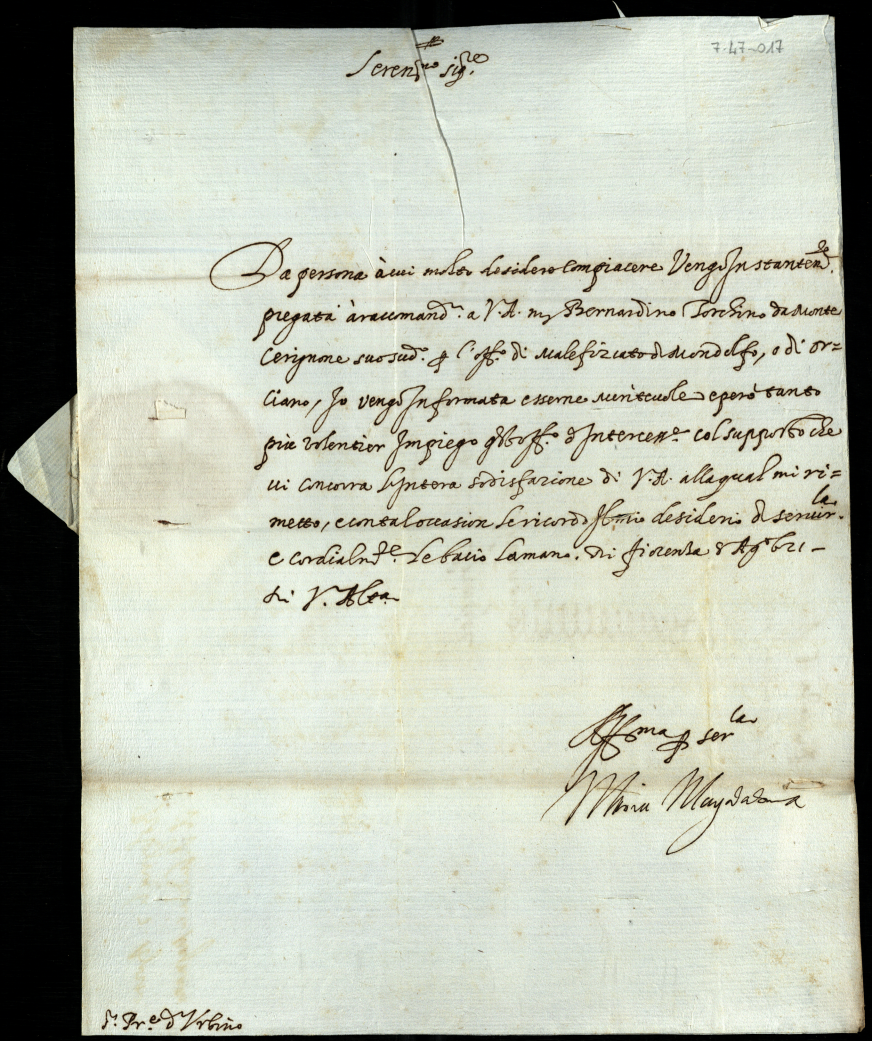 7-47-017
Seren.mo Sig.re
Da persona à cui molto desidero Compiacere Vengo Instantem.te
pregata à raccomand.r a V.A. m. Bernardino Torchino da Monte
Cerignone suo sud.o p l'off.o di Malefizcato di Mondolfo, o di or=
ciano, Io vengo Informata esserne meriteuole e però tanto
più volentier Impiego q.sto off.o d'Interces.ne col supposto che
ui concorra l'Intera sodisfazione di V.A. alla qual mi ri=
metto, e con tal occasion le ricordo Il mio desiderio di seruir.la
e cordialm.te le bacio la mano. Di fiorenza 8 Ag.o 621 –
Di V. Altza
Aff.ma p ser.la
Maria Magdalena
S.r Pr.e d'Vrbino